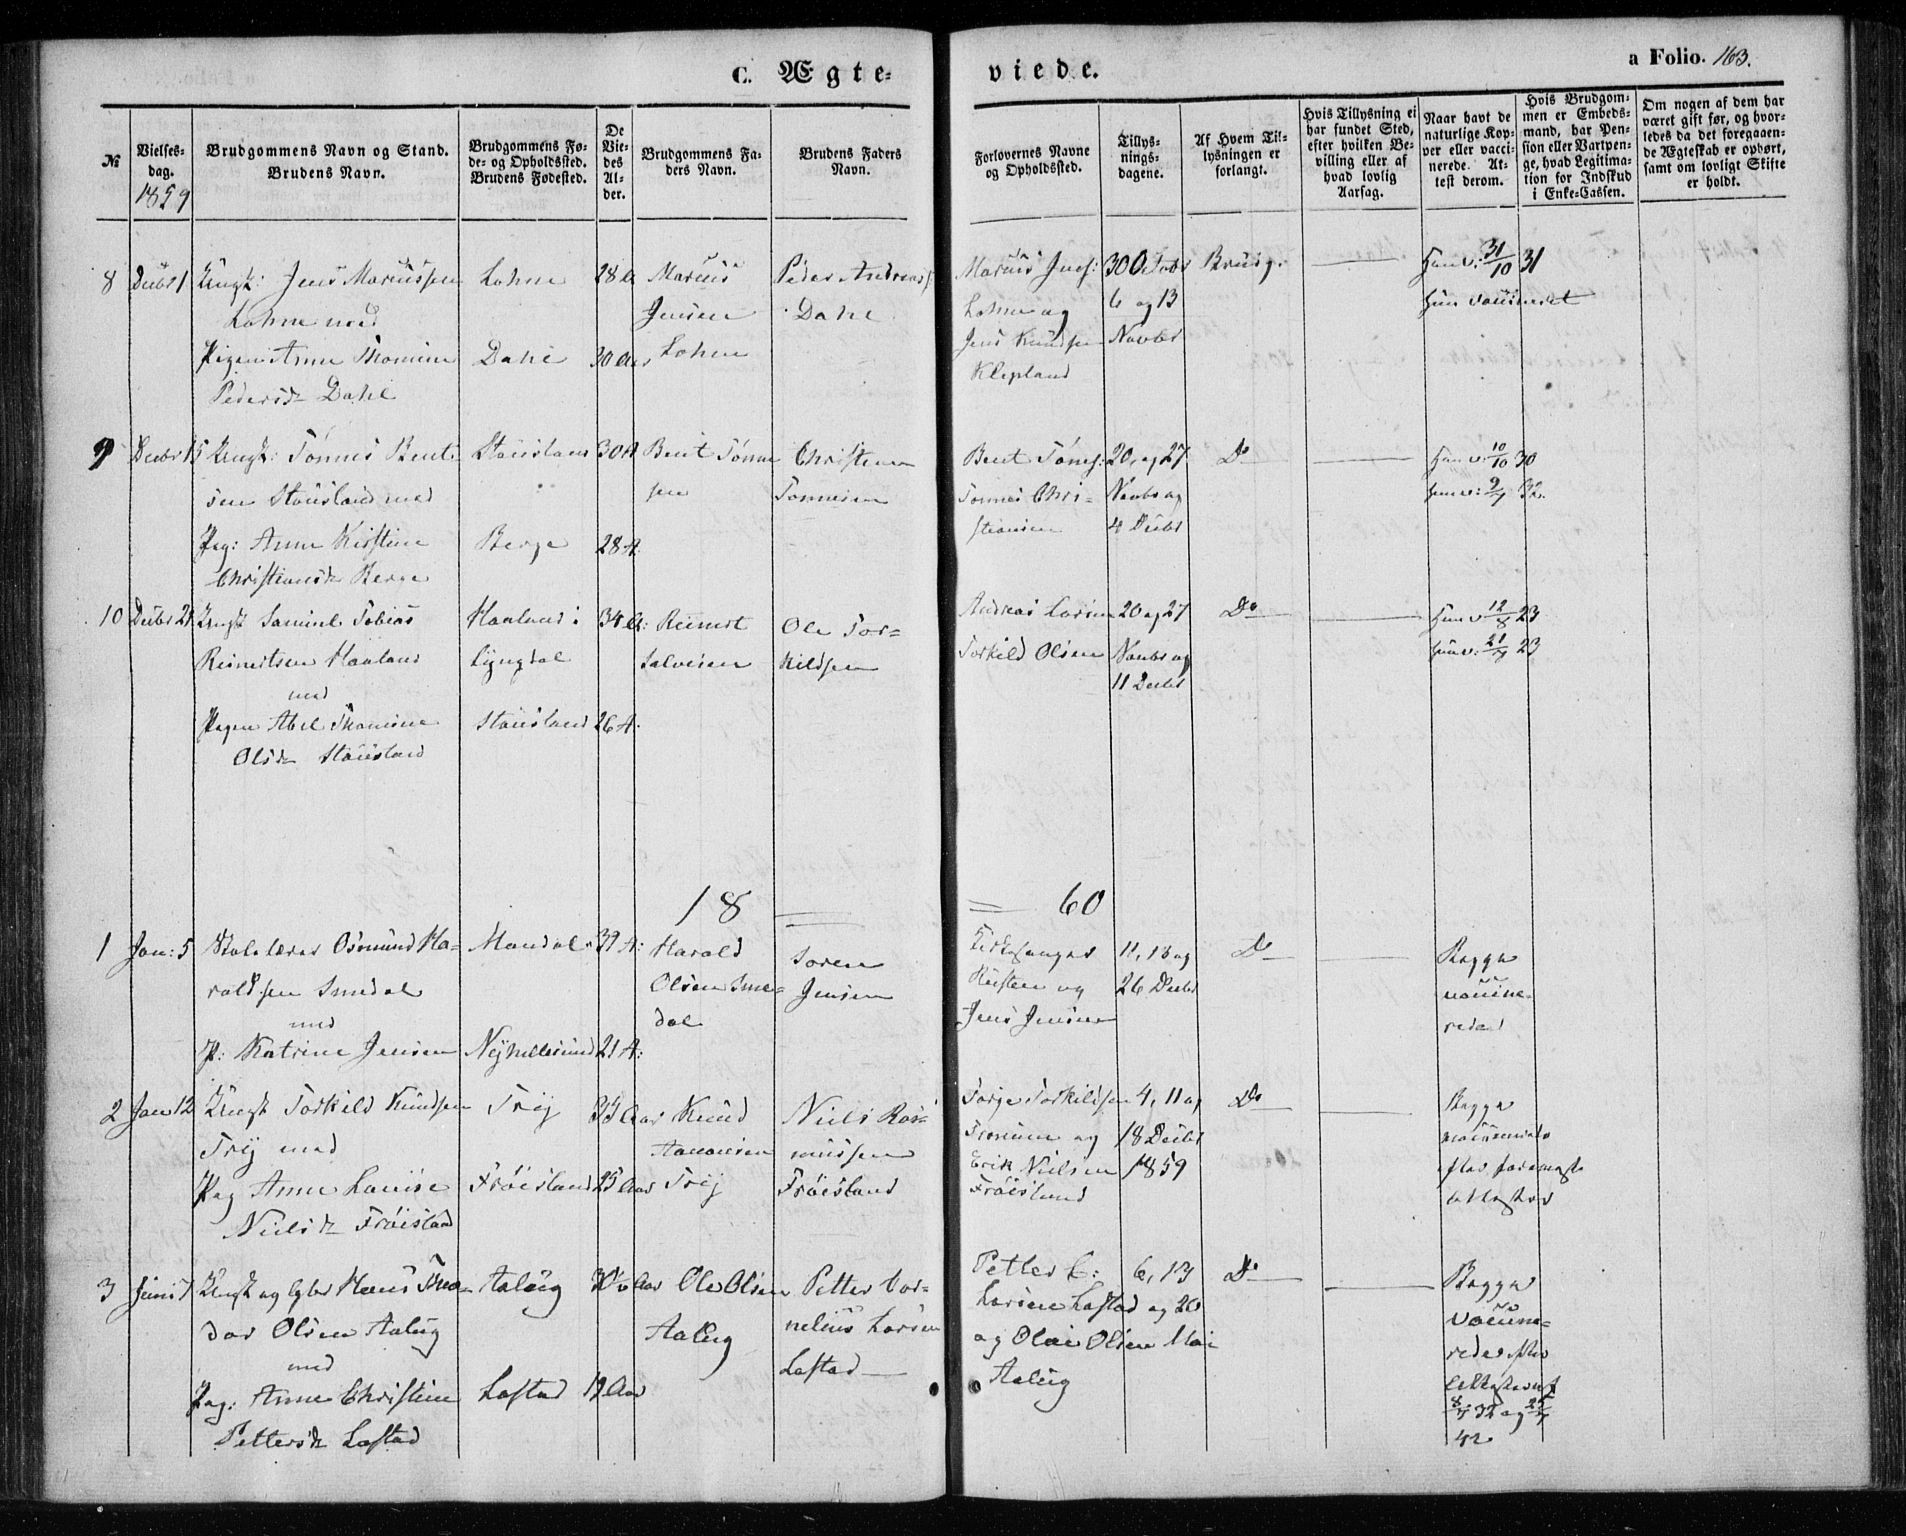 C. Ægte=
viede.
a Folio. 163.
№
Vielses-
dag.
1859
Brudgommens Navn og Stand.
Brudens Navn.
Brudgommens Fø-
de- og Opholdssted.
Brudens Fødested.
De
Vie-
des
Al-
der.
Brudgommens Fa-
ders Navn.
Brudens Faders
Navn.
Forlovernes Navne
og Opholdssted.
Tillys-
nings-
dagene.
Af Hvem Til-
lysningen er
forlangt.
Hvis Tillysning ei
har fundet Sted,
efter hvilken Be-
villing eller af
hvad lovlig
Aarsag.
Naar havt de
naturlige Kop-
per eller vacci-
nerede. At-
test derom.
Hvis Brudgom-
men er Embeds-
mand, har Pen-
sion eller Vartpen-
ge, hvad Legitima-
tion for Indskud
i Enke-Cassen.
Om nogen af dem har
været gift før, og hvor-
ledes da det foregaaen-
de Ægteskab er ophørt,
samt om lovligt Skifte
er holdt.
8 Decbr 1 Ungk: Jens Mariussen
Lohne med
Pigen Anne Thomine
Pedersd. Dahl
Lohne
Dahl
28 A
30 Aar
Marius
Jensen
Lohne
Peder Andreas
Dahl
Marius Jens:
Lohne og
Jens Knudsen
Klepland
30 Octobr
6 og 13
Novbr
Brudg.
Han v: 31/10 31
Hun vaccineret
9 Decbr 15 Ungk: Tønnes Bent-
sen Stausland med
Pig: Anne Kirstine
Christensd. Berge
Stausland
Berge
30 A
28 A.
Bent Tønne
sen
Christen
Tønnesen
Bent Tønes:
Tønnes Chri-
stensen
20, og 27
Novbr og
4 Decbr
Do
Han v: 10/10 30
Hun v: 9/7 32.
10 Decbr 21 Ungk Samuel Tobias
Reinertsen Haaland
med
Pigen Abel Thomine
Olsd. Stausland
Haaland i
Lyngdal
Stausland
34 A:
26 A.
Reinert
Salvesen
Ole Tor=
kildsen
Andreas Larsen
Torkild Olsen
20 og 27
Novbr og
11 Decbr
Do
Han v 12/8 23
Hun v: 23
18
60
1 Jan: 5 Skolelærer Osmund Ha-
raldsen Smedal
med
P: Katrine Jensen
Mandal
Nyhellesund
39 A:
21 A:
Harald
Olsen Sme=
dal
Soren
Jensen
Kirkesanger
og
Jens Jensen
11, 18 og
26 Decbr
Do
Begge
vaccine-
rede
2 Jan 12 Ungk Torkild Knudsen
Try med
Pig Anne Louise
Nielsd. Frøisland
Try
Frøisland
35 Aar
25 Aar
Knud
Aanonsen
Try
Niels Ras-
mussen
Frøisland
Torje Torkildsen
og
Erik Nielsen
Frøisland
4, 11 og
18 Decbr
1859
Do
Begge
vaccinerede
efter foreviste
attester
3 Juni 7 Ungk og Hans Theo-
dor Olsen Aalug
med
Pig: Anne Christine
Pettersd. Lastad
Aalug
Lastad
19 Aar
Ole Olsen
Aalug
Petter Cor-
nelius Larsen
Lastad
Petter C:
Larsen Lastad
og Olai Olsen
Aalug
6, 13
og 20
Mai
Do
Begge
vaccine-
rede efter
Attester af
8/7 32 og 25/7
42